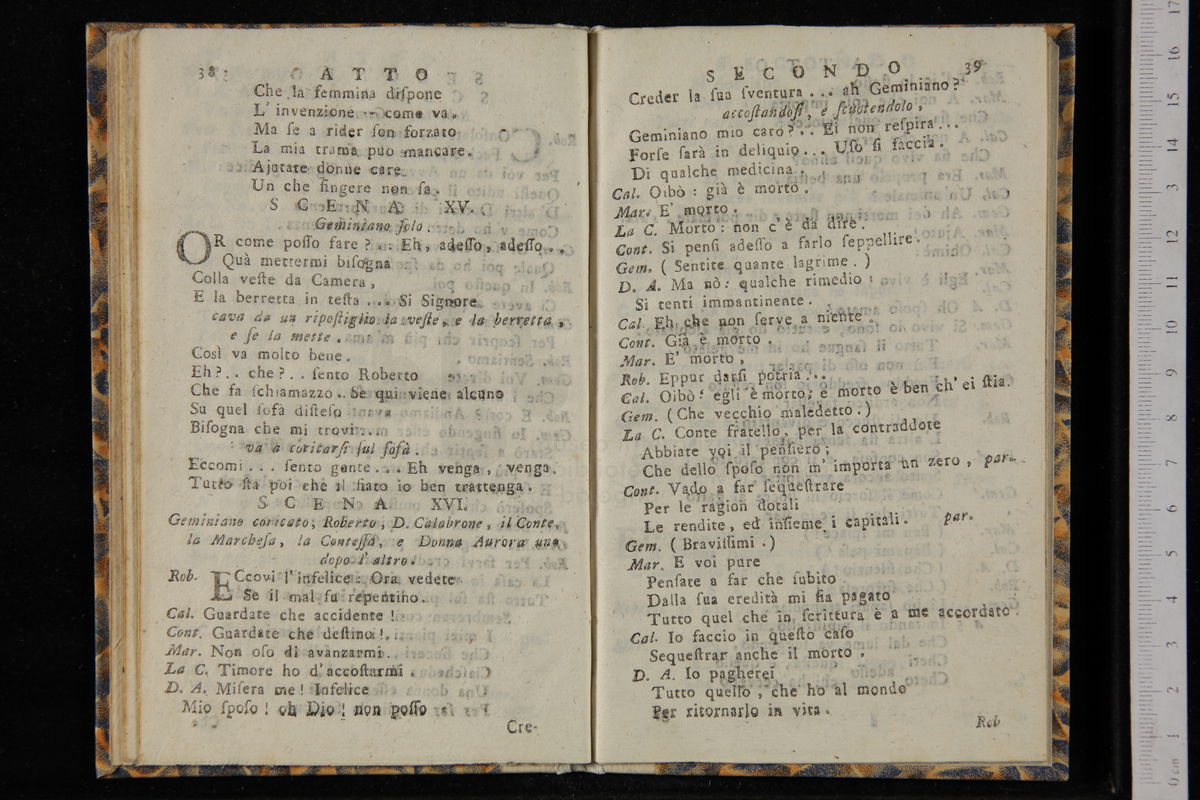 38 ATTO
Che la femmina diſpone
L' invenzione -- come va.
Ma ſe a rider ſon forzato
La mia trama può mancare.
Ajutate donne care
Un che fingere non ſa.
SCENA XV.
Geminiano ſolo.
OR come poſſo fare? .. Eh, adeſſo, adeſſo..
Quà mettermi biſogna
Colla veſte da Camera,
E la berretta in teſta ... Si Signore
cava da un ripoſtiglio la veſte, e la berretta,
e ſe la mette.
Così va molto bene.
Eh?.. che?.. ſento Roberto
Che fa ſchiamazzo.. Se qui viene alcuno
Su quel ſofà diſteſo
Biſogna che mi trovi...
va a coricarſi ſul ſofà.
Eccomi... ſento gente... Eh venga, venga.
Tutto ſta poi che il fiato io ben trattenga.
SCENA XVI.
Geminiano coricato; Roberto, D. Calabrone, il Conte,
la Marcheſa, la Conteſſa, e Donna Aurora uno
dopo l' altro.
Rob. ECcovi l' infelice: Ora vedete
Se il mal fu repentino.
Cal. Guardate che accidente!
Cont. Guardate che deſtino!
Mar. Non oſo di avanzarmi.
La C. Timore ho d' accoſtarmi.
D. A. Miſera me! Infelice
Mio ſpoſo! oh Dio! non poſſo
Cre-
SECONDO 39
Creder la ſua ſventura ... ah Geminiano?
accoſtandoſi, e ſcuotendolo,
Geminiano mio caro?... Ei non reſpira...
Forſe farà in deliquio... Uſo ſi faccia
Di qualche medicina.
Cal. Oibò: già è morto.
Mar. E' morto.
La C. Morto: non c'è da dire.
Cont. Si penſi adeſſo a farlo ſeppellire.
Gem. (Sentite quante lagrime.)
D. A. Ma nò: qualche rimedio
Si tenti immantinente.
Cal. Eh che non ſerve a niente.
Cont. Già è morto.
Mar. E' morto,
Rob. Eppur darſi potria...
Cal. Oibò: egli è morto, e morto è ben ch' ei ſtia.
Gem. (Che vecchio maledetto.)
La C. Conte fratello, per la contraddote
Abbiate voi il penſiero;
Che dello ſpoſo non m' importa un zero, par.
Cont. Vado a far ſequeſtrare
Per le ragion dotali
Le rendite, ed inſieme i capitali. par.
Gem. (Braviſſimi.)
Mar. E voi pure
Penſate a far che ſubito
Dalla ſua eredità mi ſia pagato
Tutto quel che in ſcrittura è a me accordato
Cal. Io faccio in queſto caſo
Sequeſtrar anche il morto.
D. A. Io pagherei
Tutto quello, che ho al mondo
Per ritornarlo in vita.
Rob